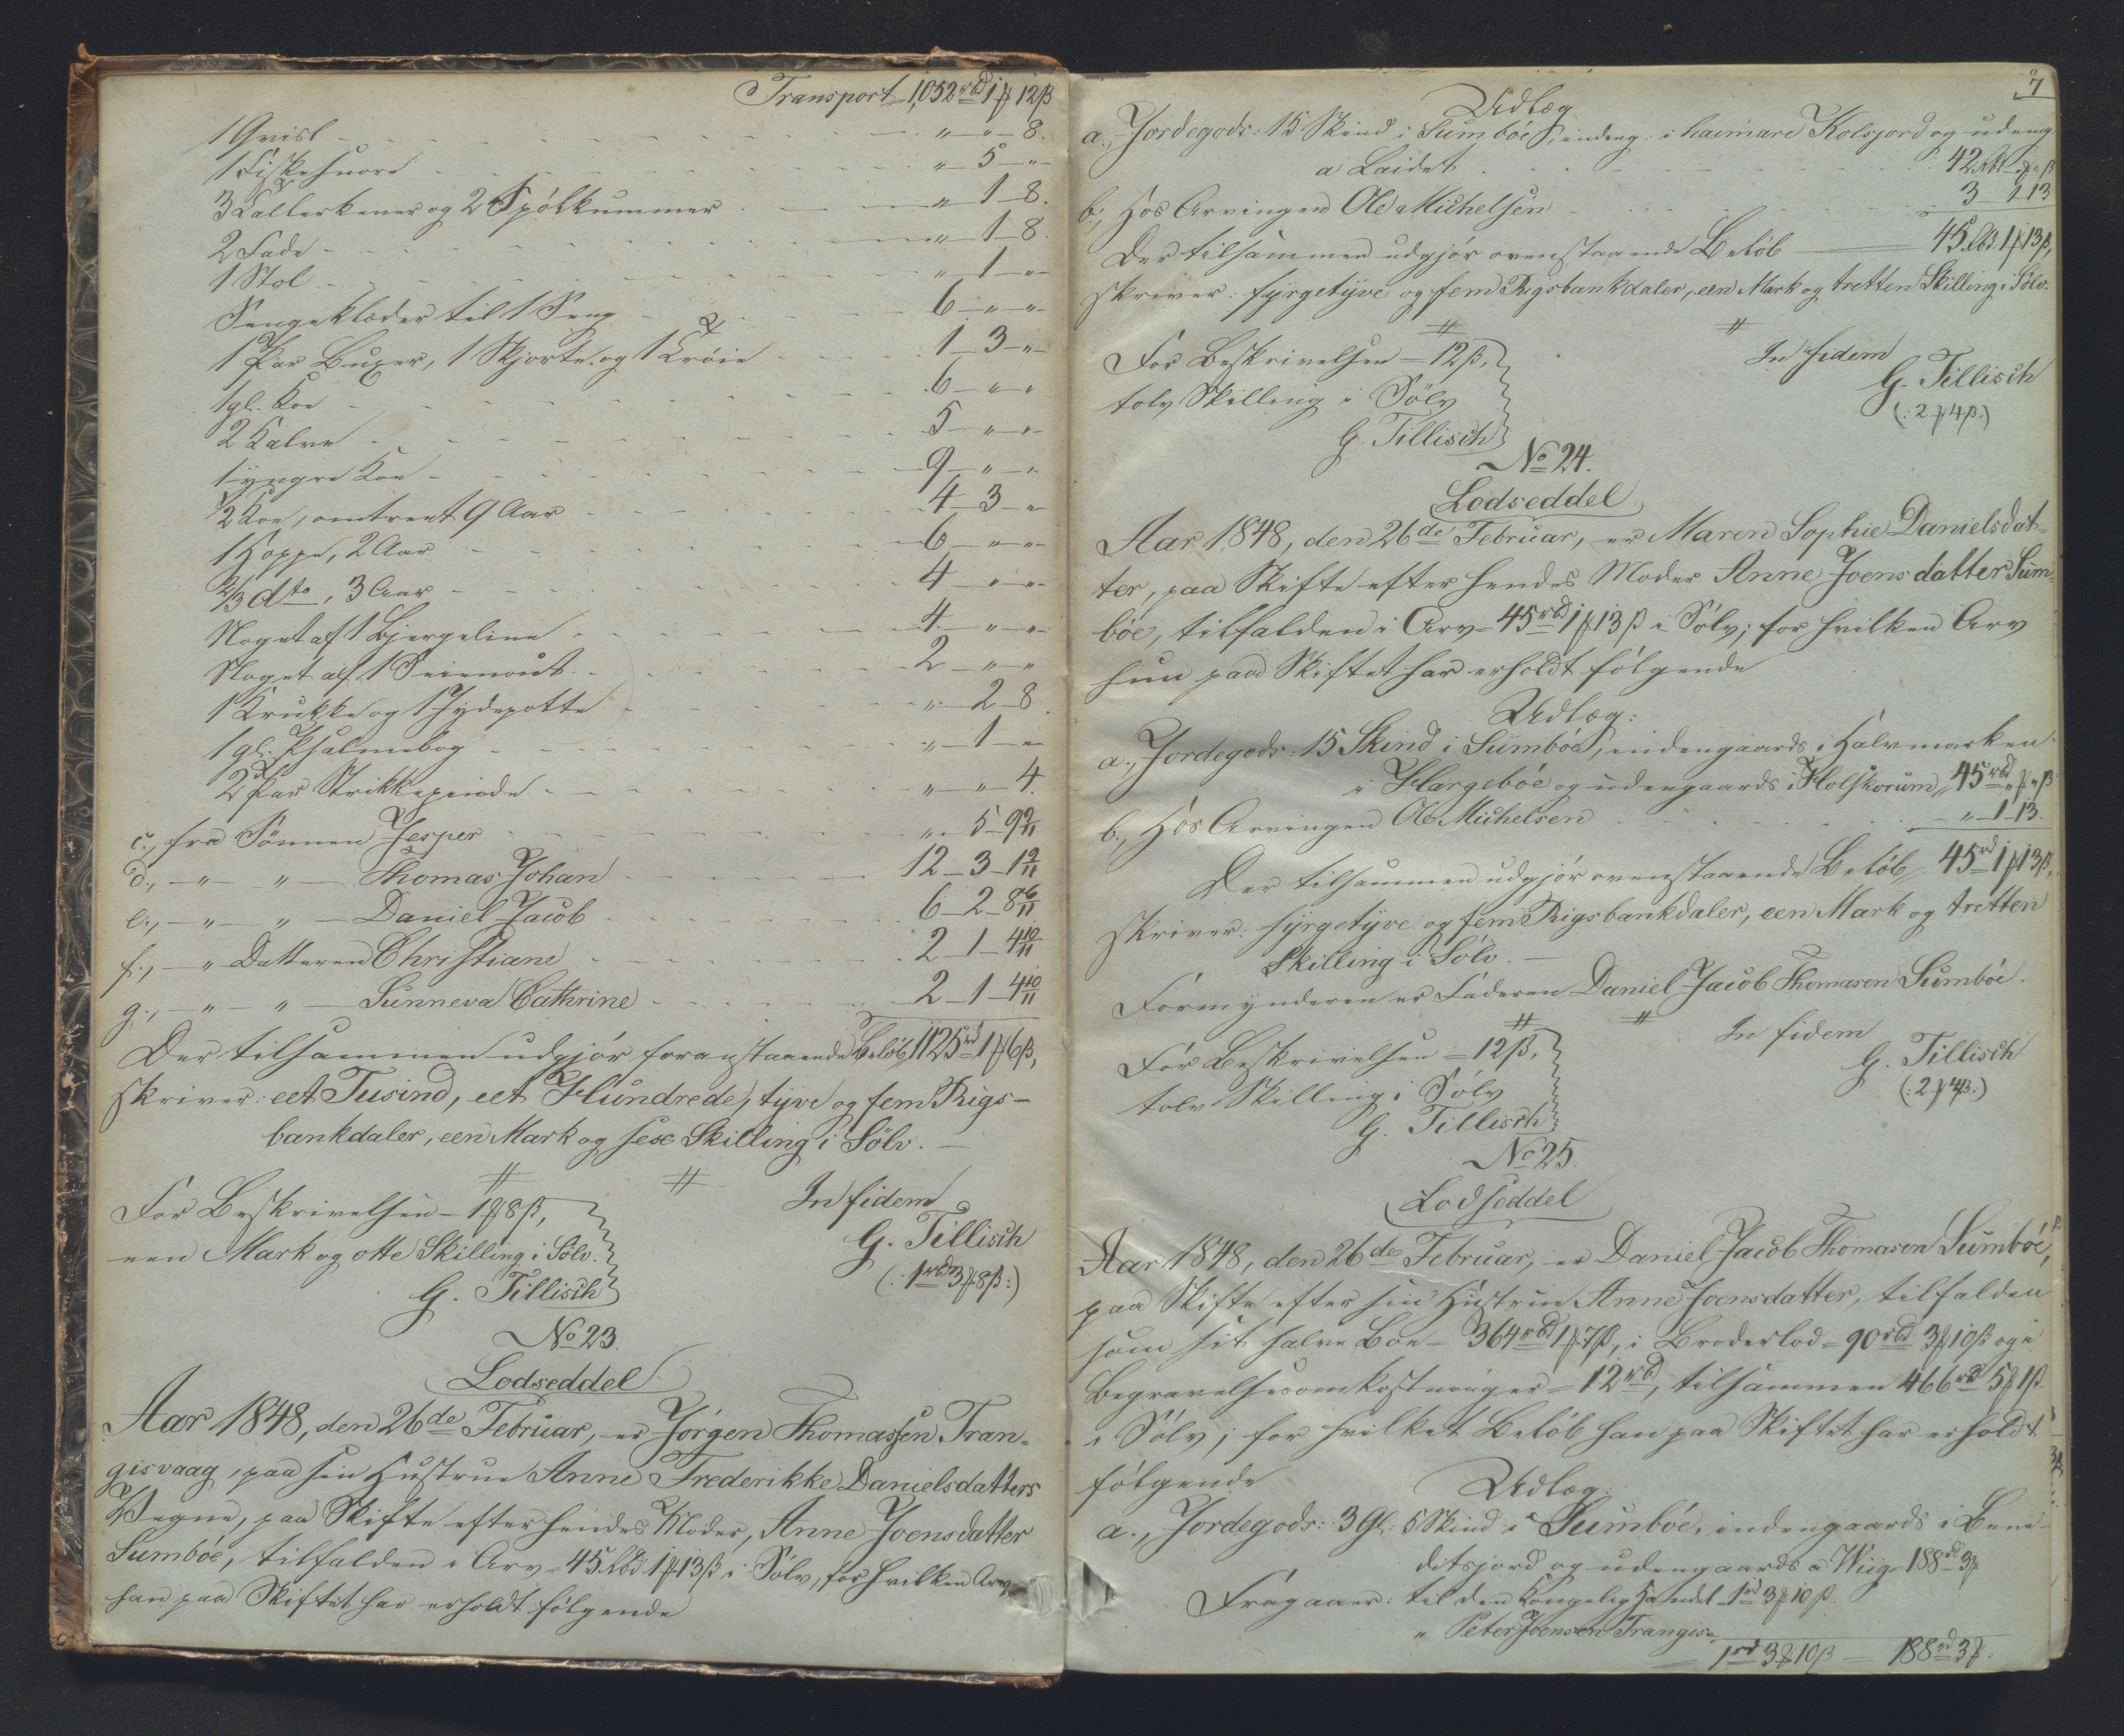 Transport 1,052 rbd 1 ₻ 12 β
1 Qvisl - - - „ - „ - 8.
1 Fiskesnøre - - - „ - 5 - „
3 Tallerkener og 2 Spølkummer - - - „ - 1 - 8.
2 Fade - - - „ - 1 - 8.
1 Stol - - - „ - 1 - „
Sengeklæder til 1 Seng - - - 6 - „ - „
1 Par Buxer, 1 Skjorte og 1 Trøie - - - 1 - 3 - „
1 gl. Koe - - - 6 - „ - „
2 Kalve - - - 5 - „ - „
1 yngre Koe - - - 9 - „ - „
1/2 Koe, omtrent 9 Aar - - - 4 - 3 - „
1 Hoppe, 2 Aar - - - 6 - „ - „
2/3 dto, 3 Aar - - - 4 - „ - „
Noget af 1 Bjergeline - - - 4 - „ - „
Noget af 1 Seienout - - - 2 - „ - „
1 Krukke og 1 Jydepotte - - - „ - 2 - 8.
1 gl. Psalmebog - - - „ - 1 - „
2 Par Strikkepinde - - - „ - „ - 4.
c., fra Sønnen Jesper - - - „ - 5 - 9 2/11
d., - „ - „ - Thomas Johan - - - 12 - 3 - 1 9/11
e., - „ - „ - Daniel Jacob - - - 6 - 2 - 8 6/11
f., - „ Datteren Christiane - - - 2 - 1 - 4 10/11
g., - „ - „ - Sunneva Cathrine - - - 2 - 1 - 4 10/11
Der tilsammen udgjør foranstaaende Beløb, 1125 rd 1 ₻ 6 β,
skriver: eet Tusind, eet Hundrede, tyve og fem Rigs-
bankdaler, een Mark og sex Skilling i Sølv. -
For Beskrivelsen - 1 ₻ 8 β,
In fidem
een Mark og otte Skilling i Sølv.
G. Tillisch
G. Tillisch
(: 1 rbd 3 ₻ 8 β :)
No 23.
Lodseddel
Aar 1848, den 26de Februar, er Jørgen Thomassen Tran-
gisvaag, paa sin Hustrue Anne Frederikke Danielsdatters
Vegne, paa Skifte efter hendes Moder, Anne Joensdatter
Sumbøe, tilfalden i Arv - 45 Rbd 1 ₻ 13 β i Sølv, for hvilken Arv
han paa Skiftet har erholdt følgende
7
Udlæg
a., Jordegods: 15 Skind i Sumbøe, indeng. i haimare Kolsjord og udeng.
a Laidet - - - 42 Rbd „ ₻ „ β
b., Hos Arvingen Ole Michelsen - - - 3 - 1 - 13
Der tilsammen udgjør ovenstaaende Beløb - 45 Rbd. 1 ₻ 13 β,
skriver: fyrgetyve og fem Rigsbankdaler, een Mark og tretten Skilling i Sølv.
For Beskrivelsen = 12 β,
In fidem
tolv Skilling i Sølv
G. Tillisch
G. Tillisch
(: 2 ₻ 4 β :)
No 24.
Lodseddel
Aar 1848, den 26de Februar, er Maren Sophie Danielsdat-
ter, paa Skifte efter hendes Moder Anne Joensdatter Sum-
bøe, tilfalden i Arv - 45 rbd 1 ₻ 13 β i Sølv; for hvilken Arv
hun paa Skiftet har erholdt følgende
Udlæg:
a., Jordegods: 15 Skind i Sumbøe, indengaards i Halvmarken
i Hargebøe og udengaards i Holskorum, 45 rbd „ ₻ „ β
b., Hos Arvingen Ole Michelsen - - - „ - 1 - 13.
Der tilsammen udgjør ovenstaaende Beløb, 45 rd 1 ₻ 13 β,
skriver: fyrgetyve og fem Rigsbankdaler, een Mark og tretten
Skilling i Sølv. -
Formynderen er Faderen Daniel Jacob Thomasen Sumbøe.
For Beskrivelsen = 12 β,
In fidem
tolv Skilling i Sølv
G. Tillisch
G. Tillisch
(: 2 ₻ 4 β :)
No 25.
Lodseddel
Aar 1848, den 26de Februar, er Daniel Jacob Thomasen Sumbøe,
paa Skifte efter sin Hustrue Anne Joensdatter, tilfalden
som sit halve Boe - 364 rbd 1 ₻ 7 β, i Broderlod = 90 rbd 3 ₻ 10 β og i
Begravelsesomkostninger = 12 rbd, tilsammen 466 rd 5 ₻ 1 β
i Sølv; for hvilket Beløb han paa Skiftet har erholdt
følgende
Udlæg:
a., Jordegods: 3 Gl: 5 Skind i Sumbøe, indengaards i Bene-
ditsjord og udengaards a Wiig - 188 rd 3 ₻
Fragaaer: til den Kongelig Handel - 1 rd 3 ₻ 10 β.
„ Peter Joensen Trangis-
1 rd 3 ₻ 10 β - 188 rd 3 ₻.